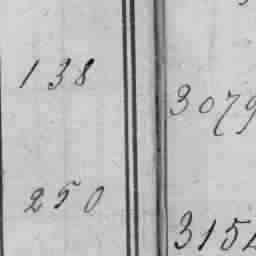 138
3079
250
315